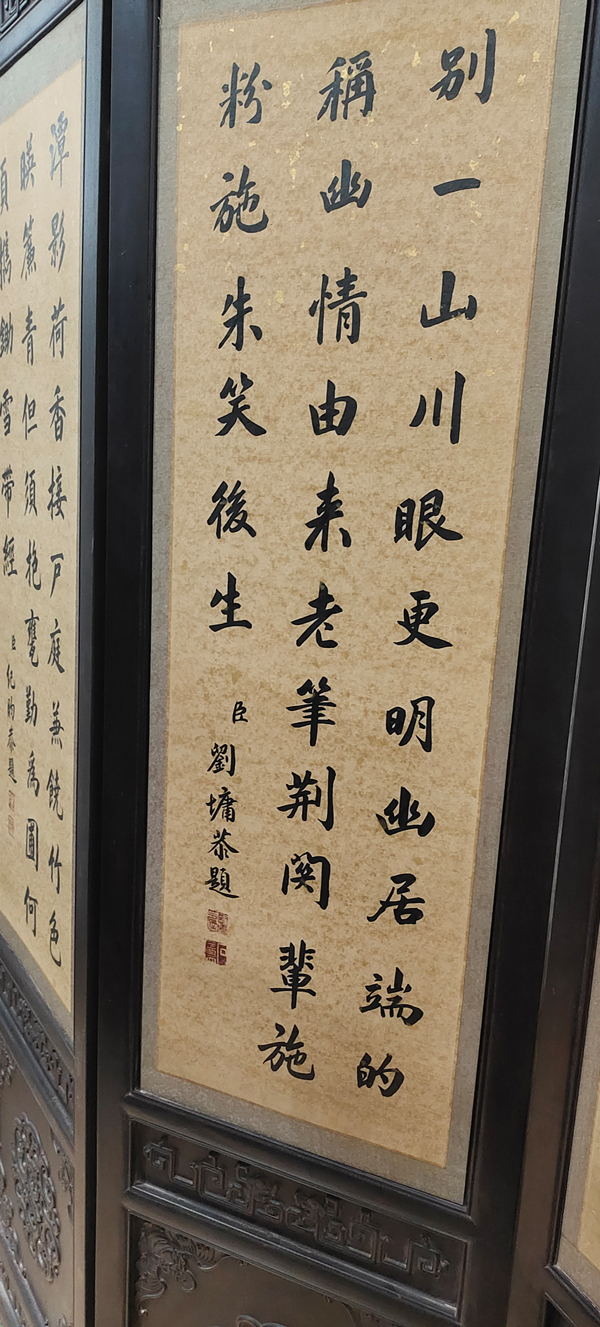 别一山川眼更明幽居端的
稱幽情由来老筆荆関輩施
粉施朱笑後生
臣劉墉恭題
潭影荷香接戶庭兼饒竹色
暎簾青但須抱甕勤為圃何
鋤雪帶經
臣紀昀恭題